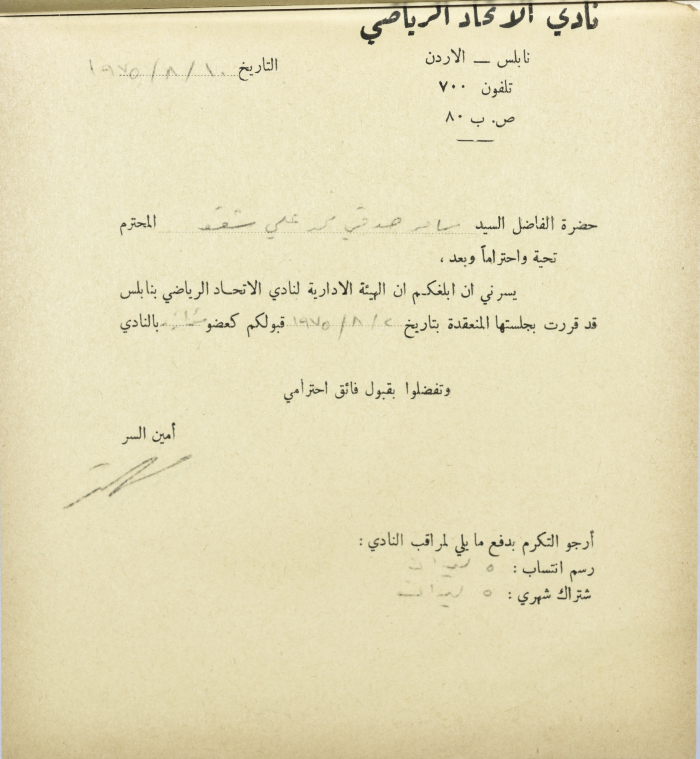 نادي الاتحاد الرياضي
نابلس — الاردن
التاريخ ١٠/٨/١٩٧٥
تلفون ٧٠٠
ص. ب ٨٠
حضرة الفاضل السيد سامر صدقي محمد علي المحترم
تحية واحتراماً وبعد ،
يسرني ان ابلغكم ان الهيئة الادارية لنادي الاتحاد الرياضي بنابلس
قد قررت بجلستها المنعقدة بتاريخ ٢/٨/١٩٧٥ قبولكم كعضو بالنادي
وتفضلوا بقبول فائق احترامي
أمين السر
أرجو التكرم بدفع ما يلي لمراقب النادي :
رسم انتساب : ٥ ليرات
شتراك شهري : ٥ ليرات